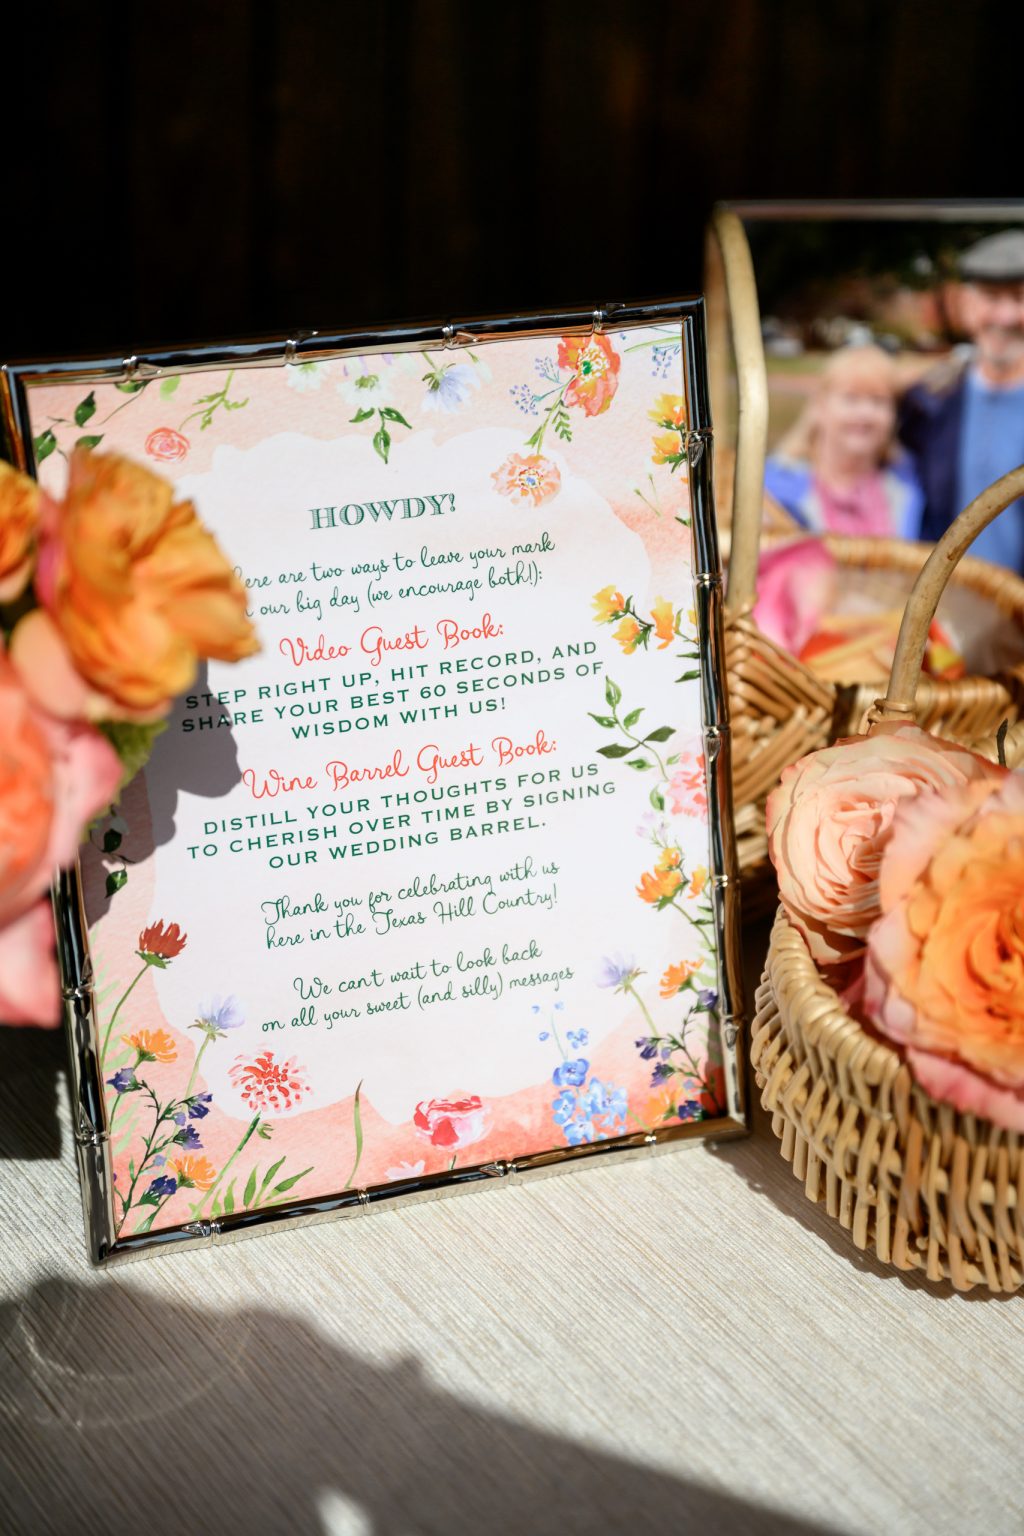 HOWDY!
here are two ways to leave your mark
our big day (we encourage both!):
Video Guest Book:
STEP RIGHT UP, HIT RECORD, AND
SHARE YOUR BEST 60 SECONDS OF
WISDOM WITH US!
Wine Barrel Guest Book:
DISTILL YOUR THOUGHTS FOR US
TO CHERISH OVER TIME BY SIGNING
OUR WEDDING BARREL.
Thank you for celebrating with us
here in the Texas Hill Country!
We can't wait to look back
on all your sweet (and silly) messages